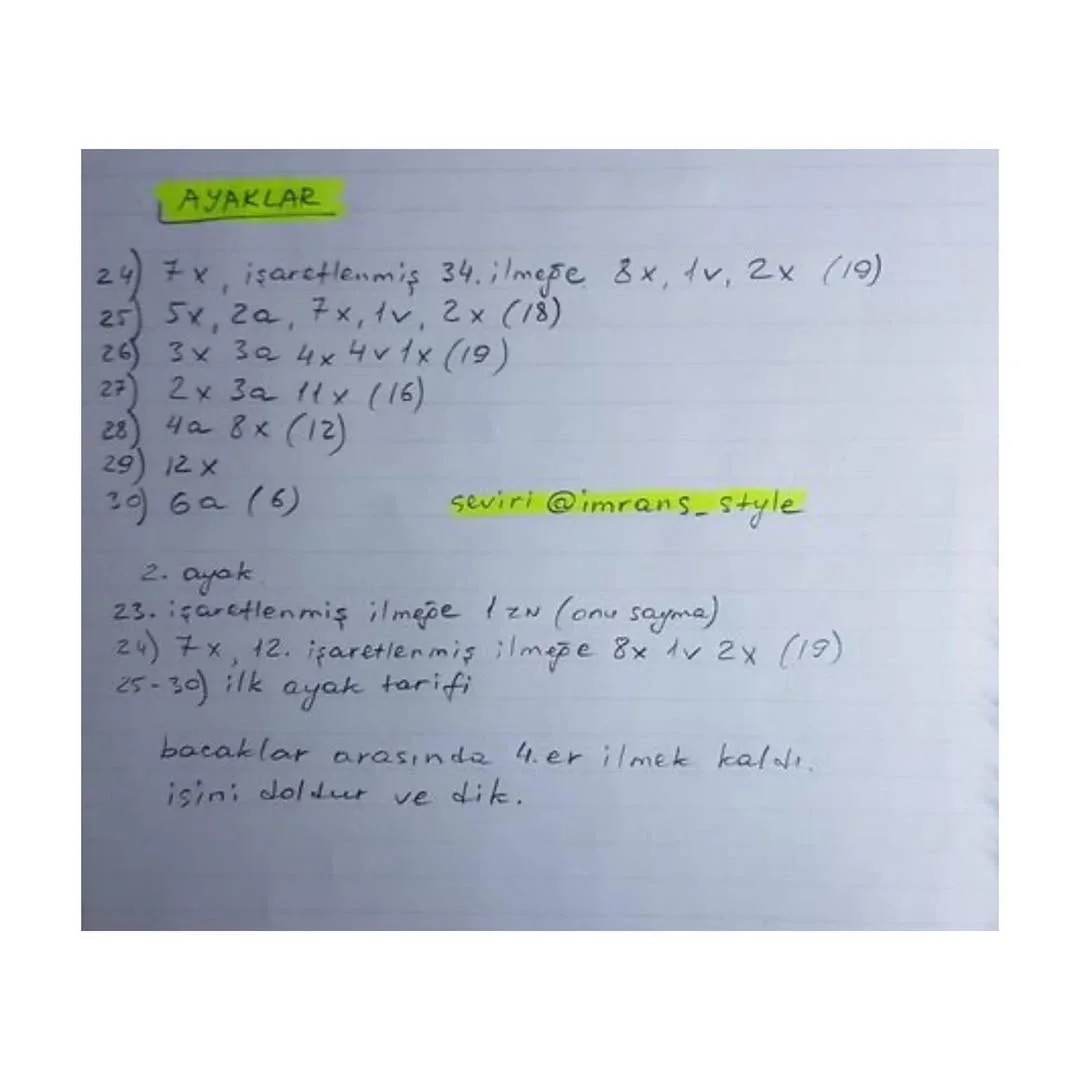 AYAKLAR
24) 7x, işaretlenmiş 34. ilmeğe 8x, 1v, 2x (19)
25) 5x, 2a, 7x, 1v, 2x (18)
26) 3x 3a 4x 4v 1x (19)
27) 2x 3a 11x (16)
28) 4a 8x (12)
29) 12x
30) 6a (6)
seviri @imrans_style
2. ayak
23. işaretlenmiş ilmeğe 1 zN (onu sayma)
24) 7x, 12. işaretlenmiş ilmeğe 8x 1v 2x (19)
25-30) ilk ayak tarifi
bacaklar arasında 4.er ilmek kaldı.
işini doldur ve dik.